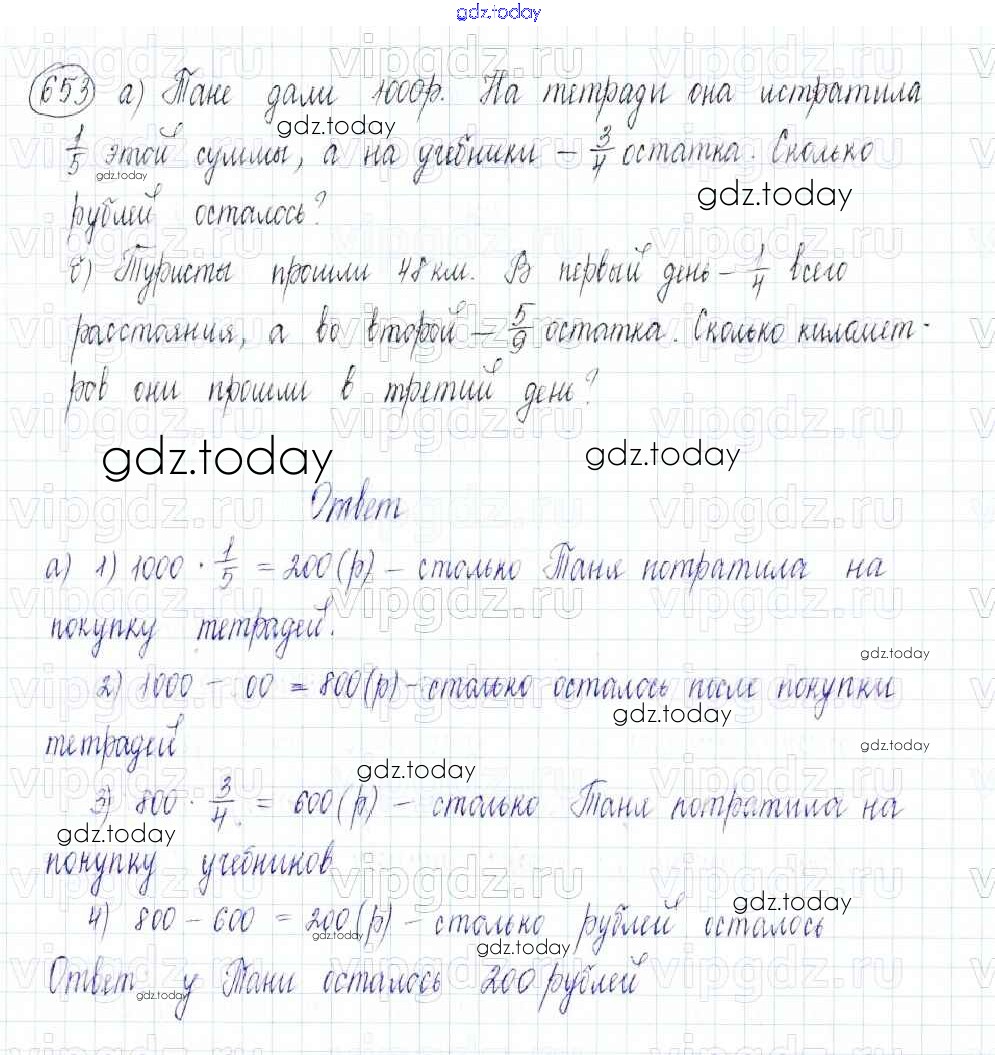 gdz.today
653 а) Тане дали 1000р. На тетради она истратила
gdz.today
1/5 этой суммы, а на учебники – 3/4 остатка. Сколько
gdz.today
gdz.today
рублей осталось?
б) Туристы прошли 48 км. В первый день – 1/4 всего
расстояния, а во второй – 5/9 остатка. Сколько километ-
ров они прошли в третий день?
gdz.today
gdz.today
Ответ
а) 1) 1000 · 1/5 = 200 (р) – столько Таня потратила на
покупку тетрадей.
gdz.today
2) 1000 – 00 = 800 (р) – столько осталось после покупки
gdz.today
тетрадей
gdz.today
gdz.today
3) 800 · 3/4 = 600 (р) – столько Таня потратила на
gdz.today
покупку учебников
gdz.today
4) 800 – 600 = 200 (р) – столько рублей осталось
gdz.today
gdz.today
Ответ у Тани осталось 200 рублей
gdz.today
vipgdz.ru